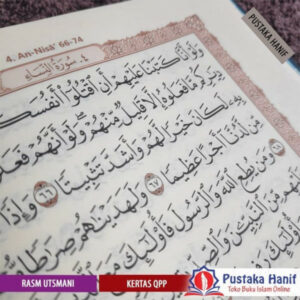 PUSTAKA HANIF
4. An-Nisā' 66-74
٤. سُورَةُ النِّسَاء
وَلَوْ أَنَّا كَتَبْنَا عَلَيْهِمْ أَنِ اقْتُلُوا أَنْفُسَكُمْ
دِيَارِكُمْ مَا فَعَلُوهُ إِلَّا قَلِيلٌ مِنْهُمْ وَلَوْ أَنَّهُمْ فَعَلُوا
بِهِ لَكَانَ خَيْرًا لَهُمْ وَأَشَدَّ تَثْبِيتًا ٦٦ وَإِذًا
مِنْ لَدُنَّا أَجْرًا عَظِيمًا ٦٧ وَلَهَدَيْنَاهُمْ صِرَاطًا
٦٨ وَمَنْ يُطِعِ اللَّهَ وَالرَّسُولَ فَأُولَئِكَ مَعَ
مِنَ النَّبِيِّينَ
RASM UTSMANI
KERTAS QPP
Pustaka Hanif
Toko Buku Islam Online